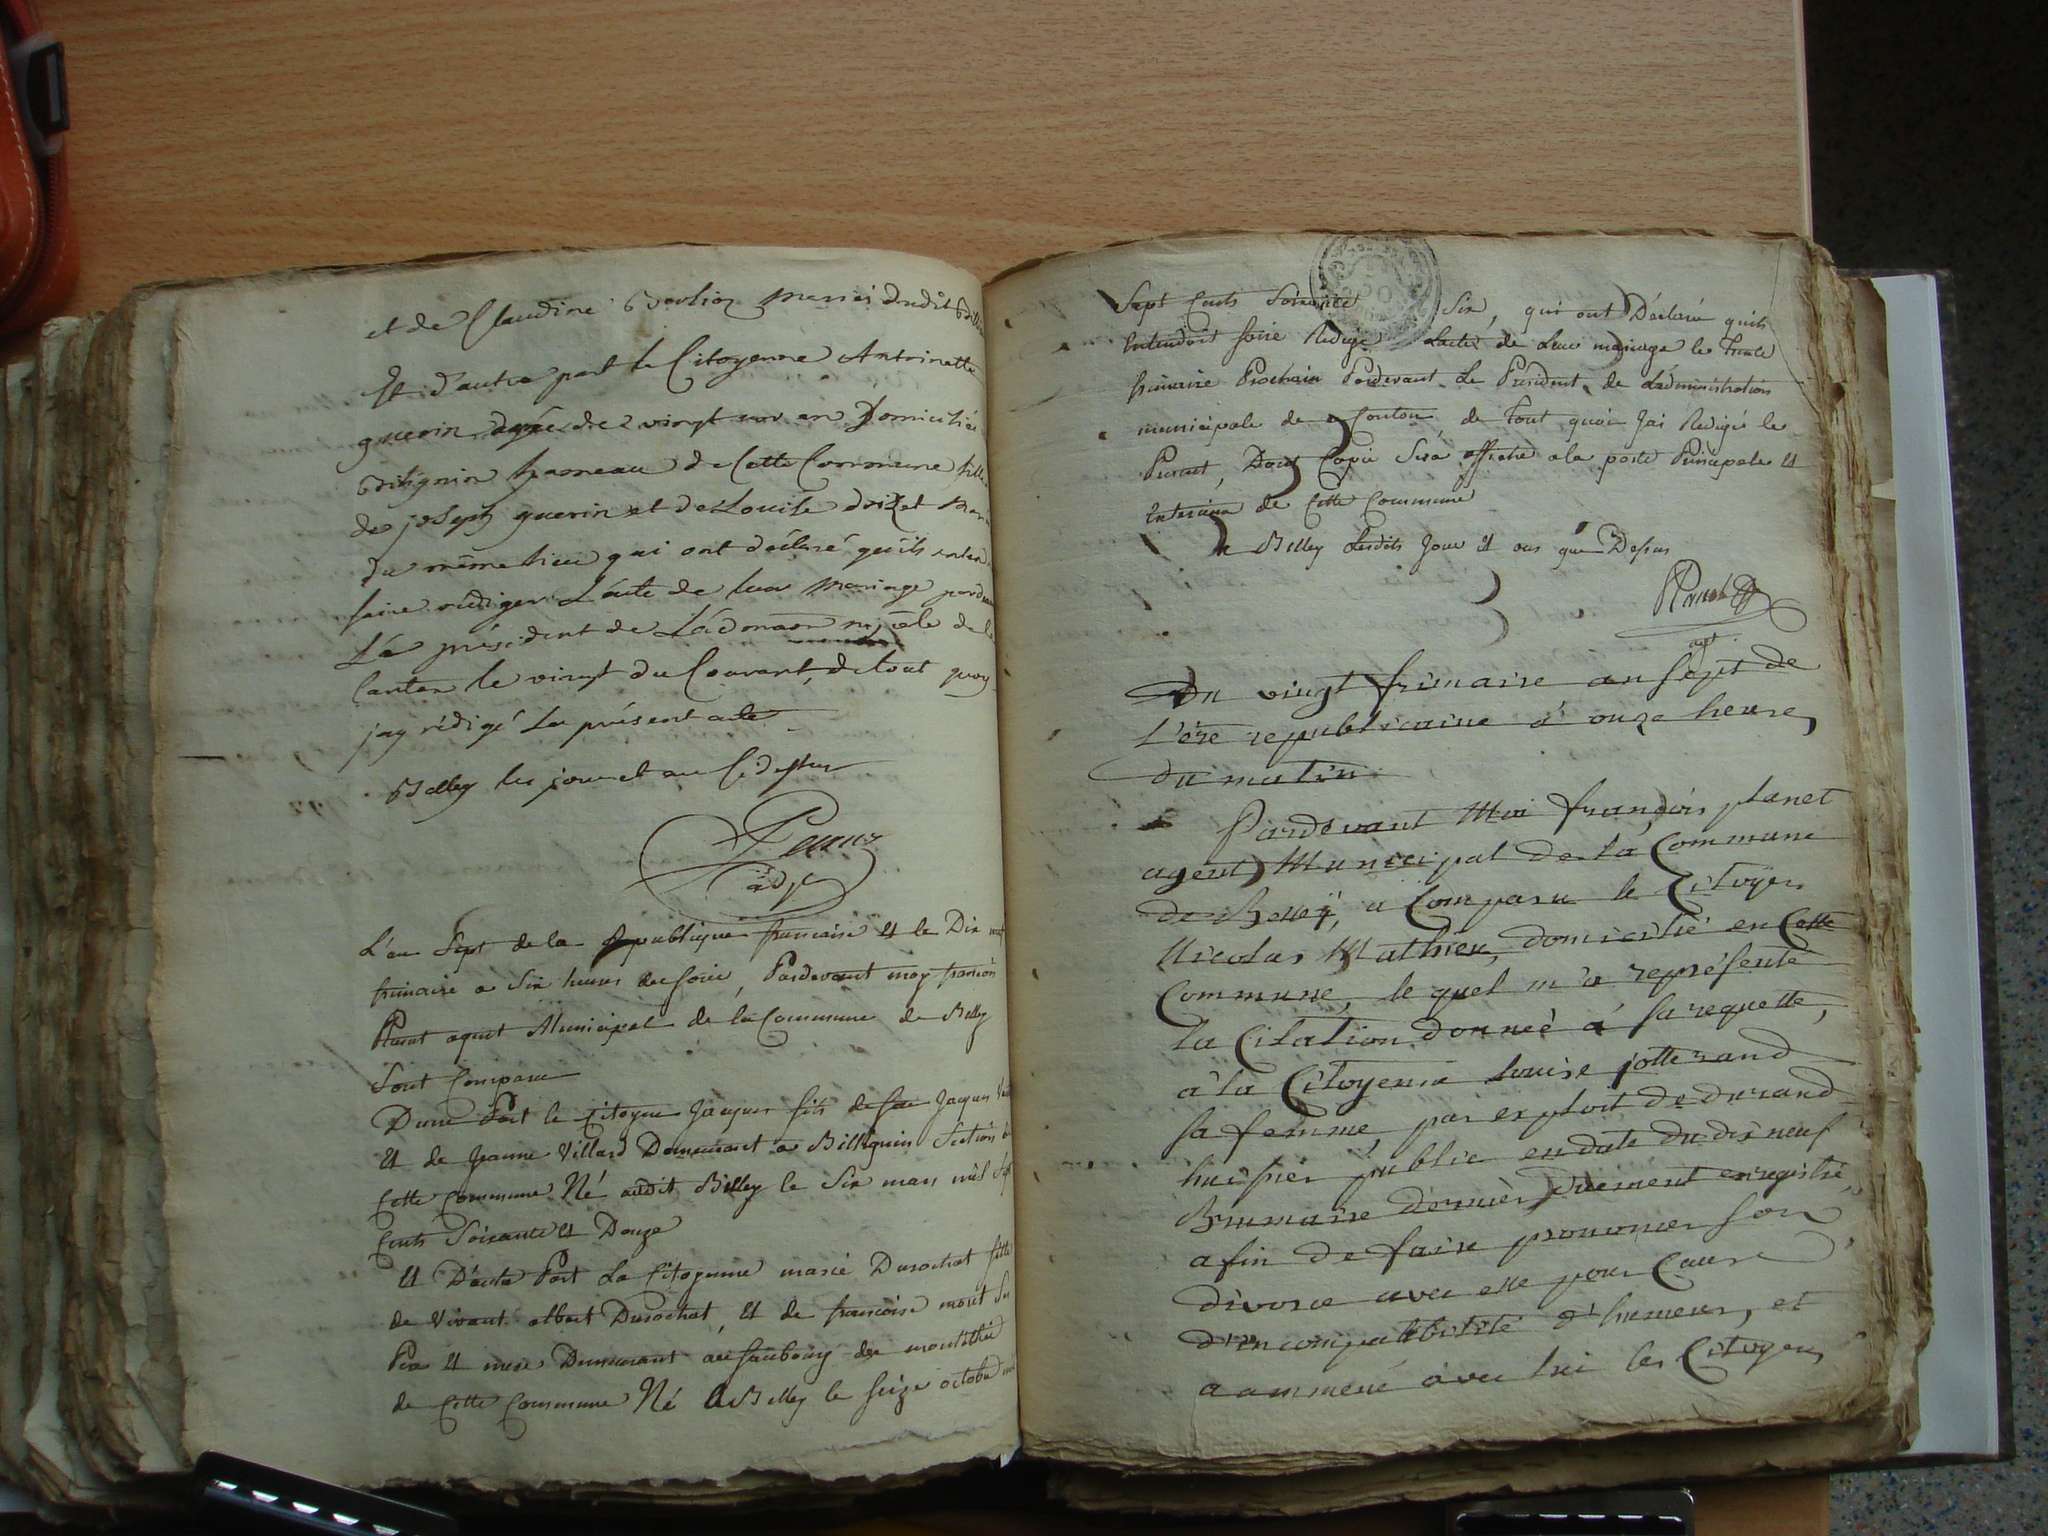 et de Claudine mariés dudit
Et d'autre part la Citoyenne Antoinette
guerin agée de vingt un an Domiciliée
hameau de Cette Commune fille
de joseph guerin et de Louise
du même lieu qui ont déclaré qu'ils
faire rédiger L'acte de leur Mariage
Le président de L'admãon mpãle de
Canton le vingt du Courant, de tout quoy
jay rédigé le présent acte
Belley les jour et an
adjt
L'an Sept de la Republique francaise et le Dix neuf
frimaire a Six heures du Soire, Pardevant moy francois
Planet agent Municipal de la Commune de Belley
Sont Comparu
Dune Part le Citoyen Jacques fils de feu Jacques
et de Jeanne Villard Demeurant a Billignin Section
Cette Commune Né audit Belley le Six mars mil Sept
Cents Soixante et Douze
et D'autre Part La Citoyenne marie Durochat fille
de Vivant albert Durochat, et de francoise
Pere et mere Demeurant au faubourg du
de Cette Commune Né a Belley le Seize octobre mil
Sept Cents Soixante Six, qui ont Déclaré quils
Entendoit faire Rédigé Lacte de Leur mariage le Trente
frimaire Prochain Pardevant Le President de Ladministration
municipale de Canton, de Tout quoi Jai Redigé le
Present, Dont Copie Sera affiché a la porte Principale et
Exterieur de Cette Commune
a Belley Lesdits Jour et ans que Dessus
Planet
agt
Du vingt frimaire an Sept de
L'ère republicaine à onze heures
du matin
Pardevant Moi françois planet
agent Municipal de la Commune
de Belley, a Comparu le Citoyen
Nicolas Mathieu, domicilié en Cette
Commune, le quel m'a représenté
la Citation donneé à sa requette,
à la Citoyenne Louise jotterand
sa femme, par exploit de durand
huissier public en date du dix neuf
Brumaire dernier duement enregistré,
afin de faire prononcer son
divorce avec elle pour Cause
d'incompatibilité d'humeur, et
a ammené avec lui les Citoyens